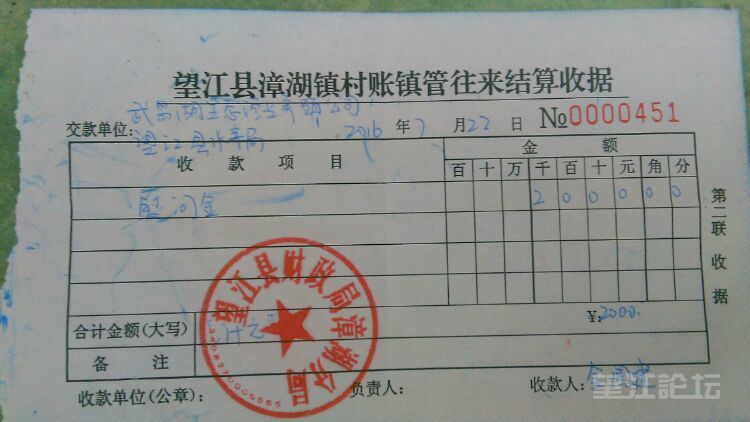 望江县漳湖镇村账镇管往来结算收据
武昌湖生态渔业有限公司
交款单位: 望江县水产局 2016 年 7 月 22 日 №0000451
收款项目 金额
百 十 万 千 百 十 元 角 分
慰问金 2 0 0 0 0 0
第二联收据
合计金额(大写) ¥:2000.
备注
收款单位(公章): 负责人: 收款人:
望江县财政局漳湖分局
望江論坛